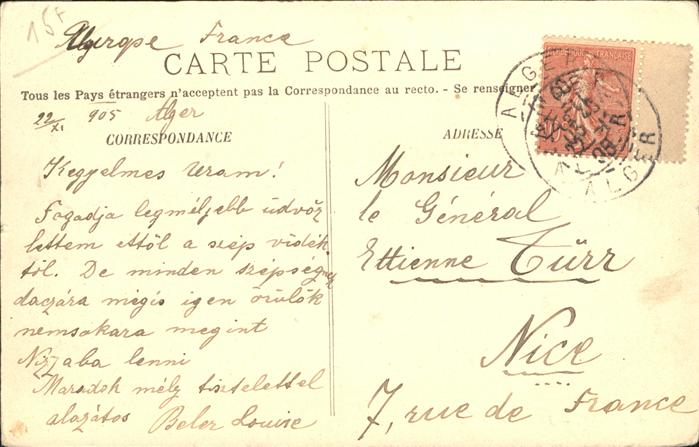 15F
Algerqse France
CARTE POSTALE
Tous les Pays étrangers n'acceptent pas la Correspondance au recto. - Se renseigner
22/XI 905 Alger
CORRESPONDANCE
Kegyelmes Uram!
Fogadja legmélyebb üdvöz
lettem ettől a szép vidék
től. De minden szépségnek
daczára mégis igen örülök
nemsokara megint
Nizzaba lenni
Maradok mély tisztelettel
alazátos Beler Louise
ADRESSE
Monsieur
le Général
Ettienne Türr
Nice
7, rue de France
ALGER
ALGER